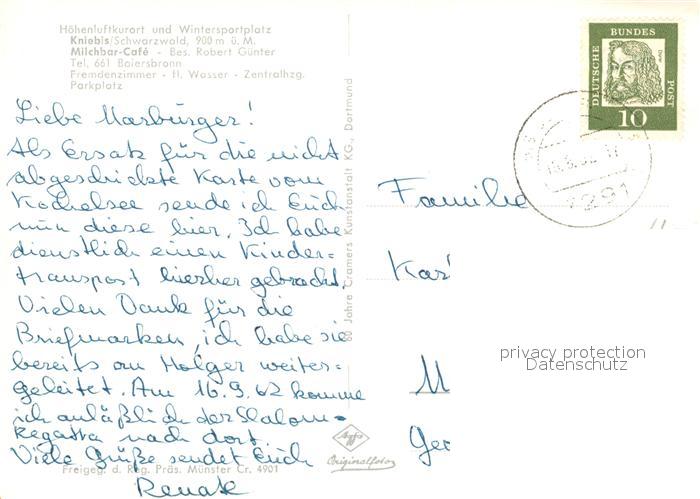 Höhenluftkurort und Wintersportplatz
Kniebis/Schwarzwald, 900 m ü. M.
Milchbar-Café - Bes. Robert Günter
Tel. 661 Baiersbronn
Fremdenzimmer - fl. Wasser - Zentralhzg.
Parkplatz
Liebe Marburger!
Als Ersatz für die nicht
abgeschickte Karte vom
Kochelsee sende ich Euch
nun diese hier. Ich habe
dienstlich einen Kinder=
transport hierher gebracht.
Vielen Dank für die
Briefmarken, ich habe sie
bereits an Holger weiter=
geleitet. Am 16.9.62 komme
ich anläßlich der Slalom=
Regatta nach dort.
Viele Grüße sendet Euch
Renate
Freigeg. d. Reg. Präs. Münster Cr. 4901
80 Jahre Cramers Kunstanstalt KG., Dortmund
Agfa
Originalfoto
DEUTSCHE
BUNDES
POST
Dürer
10
7291
Familie
Kar
M
Ger
privacy protection
Datenschutz